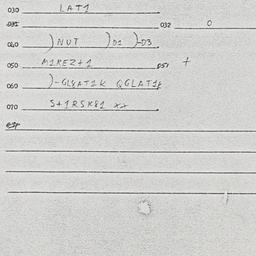 030 LAT1
031 032 0
040 )NUT )D1 )-D3
050 M1REZ+1 051 +
060 )-GL8AT1K QGLAT1K
070 S+1RSK81 xx